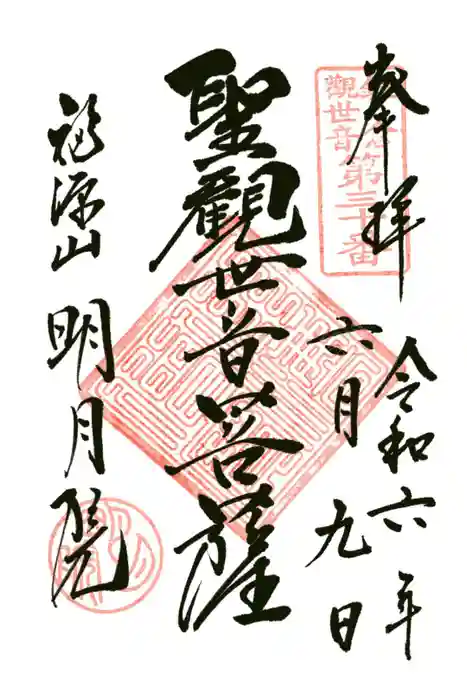 奉拝
令和六年
六月九日
聖觀世音菩薩
福源山
明月院
觀世音第三十番